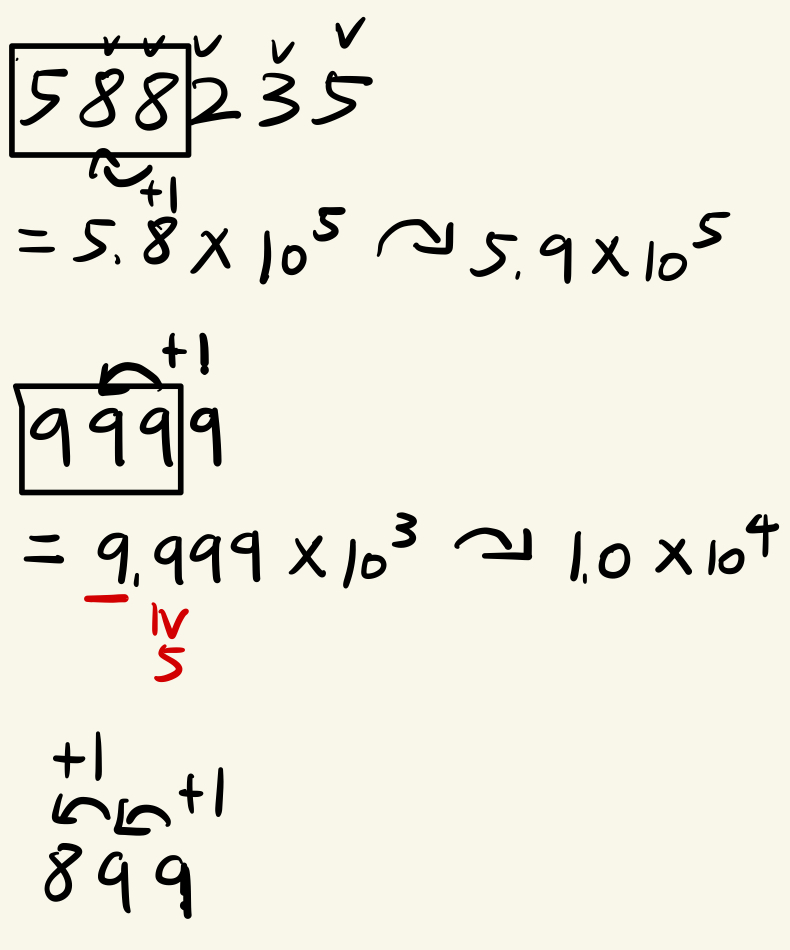 v v v v v
588235
+1
= 5.8 × 10^5 ↷ 5.9 × 10^5
+1
9999
= 9.999 × 10^3 ↷ 1.0 × 10^4
IV
5
+1
+1
899